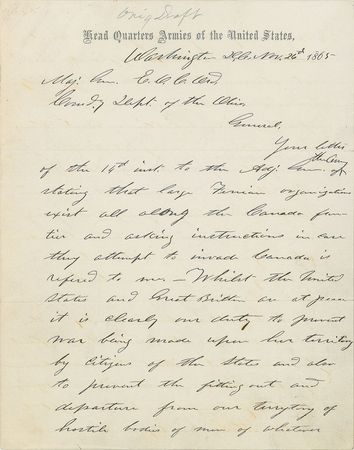 Orig Draft
Head Quarters Armies of the United States,
Washington D.C. Nov. 26th 1865
Maj. Gen. E. O. C. Ord,
Comd'g Dept. of the Ohio
General,
Your letter
of the 14th inst. to the Adj. Gen. of the Army
stating that large Fenian organizations
exist all along the Canada fron
tier and asking instructions in case
they attempt to invade Canada is
refered to me. Whilst the United
States and Great Britten are at peace
it is clearly our duty to prevent
war being made upon her territory
by Citizens of the States and also
to prevent the fitting out and
departure from our territory of
hostile bodies of men of whatever